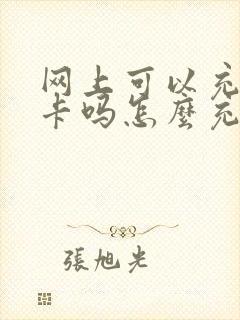 网上可以充
卡吗怎麼充
張旭光